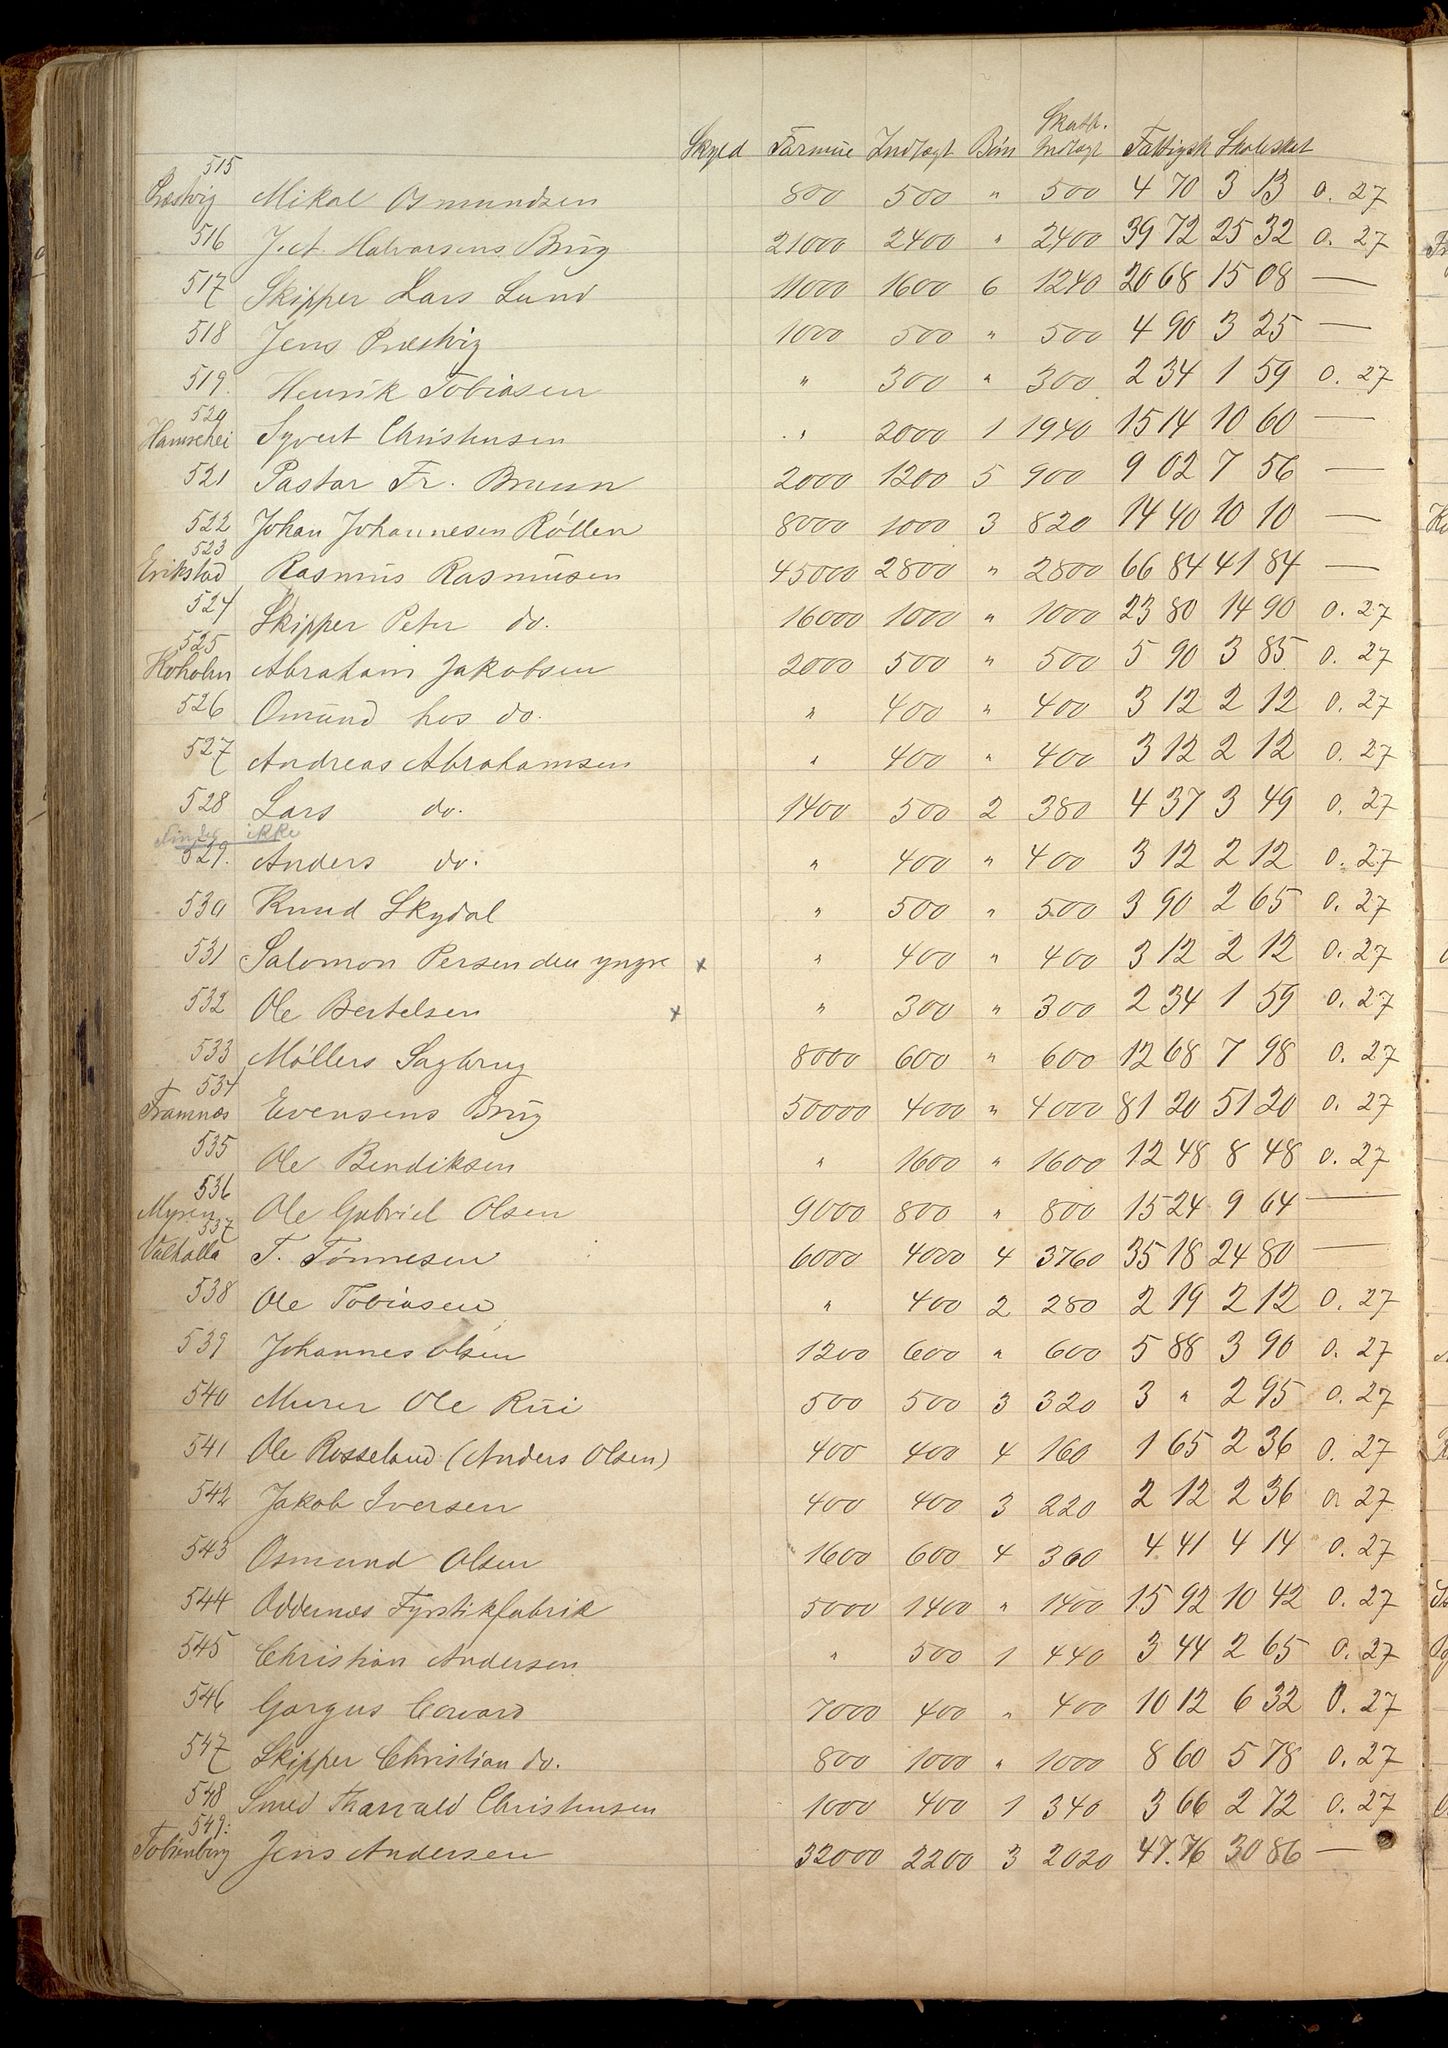 Skyld Formue Indtægt Børn Skattb. Indtægt Fattigsk Skoleskat
515
Præstvig Mikal Osmundsen 800 500 " 500 4 70 3 13 0. 27
516 J. A. Halvorsens Brug 21000 2400 " 2400 39 72 25 32 0. 27
517 Skipper Lars Lund 11000 1600 6 1240 20 68 15 08 —
518 Jens Præstvig 1000 500 " 500 4 90 3 25 —
519. Henrik Tobiasen " 300 " 300 2 34 1 59 0. 27
520
Syvert Christensen " 2000 1 1940 15 14 10 60 —
521 Pastor Fr. Bruun 2000 1200 5 900 9 02 7 56 —
522 Johan Johannesen Röllen 8000 1000 3 820 14 40 10 10 —
523
Erikstad Rasmus Rasmusen 45000 2800 " 2800 66 84 41 84 —
524 Skipper Peter do. 16000 1000 " 1000 23 80 14 90 0. 27
525
Koholm Abraham Jakobsen 2000 500 " 500 5 90 3 85 0. 27
526 Omund hos do. " 400 " 400 3 12 2 12 0. 27
527 Andreas Abrahamsen " 400 " 400 3 12 2 12 0. 27
528 Lars do. 1400 500 2 380 4 37 3 49 0. 27
Findes ikke
529. Anders do. " 400 " 400 3 12 2 12 0. 27
530 Knud Skydal " 500 " 500 3 90 2 65 0. 27
531 Salomon Persen den yngre x " 400 " 400 3 12 2 12 0. 27
532 Ole Bertelsen x " 300 " 300 2 34 1 59 0. 27
533 Möllers Sagbrug 8000 600 " 600 12 68 7 98 0. 27
534
Framnæs Evensens Brug 50000 4000 " 4000 81 20 51 20 0. 27
535 Ole Bendiksen " 1600 " 1600 12 48 8 48 0. 27
536
Myren Ole Gabriel Olsen 9000 800 " 800 15 24 9 64 —
537
Valhalla T. Tönnesen 6000 4000 4 3760 35 18 24 80 —
538 Ole Tobiasen " 400 2 280 2 19 2 12 0. 27
539 Johannes Olsen 1200 600 " 600 5 88 3 90 0. 27
540 Murer Ole Rui 500 500 3 320 3 " 2 95 0. 27
541 Ole Rosseland (Anders Olsen) 400 400 4 160 1 65 2 36 0. 27
542 Jakob Iversen 400 400 3 220 2 12 2 36 0. 27
543 Osmund Olsen 1600 600 4 360 4 41 4 14 0. 27
544 Oddernes Fyrstikfabrik 5000 1400 " 1400 15 92 10 42 0. 27
545 Christian Andersen " 500 1 440 3 44 2 65 0. 27
546 Gorgus Coward 7000 400 " 400 10 12 6 32 0. 27
547 Skipper Christian do. 800 1000 " 1000 8 60 5 78 0. 27
548 Smed Tharvald Christensen 1000 400 1 340 3 66 2 72 0. 27
549.
Jens Andersen 32000 2200 3 2020 47.76 30 86 —